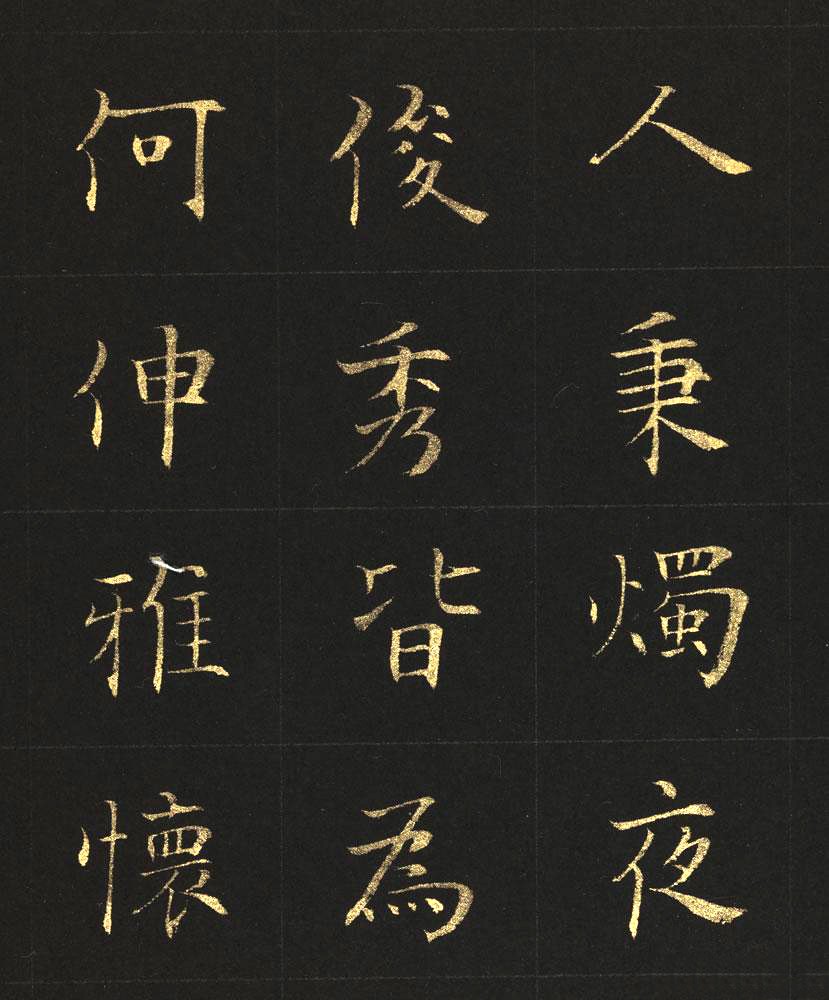 人秉燭夜
俊秀皆為
何伸雅懷